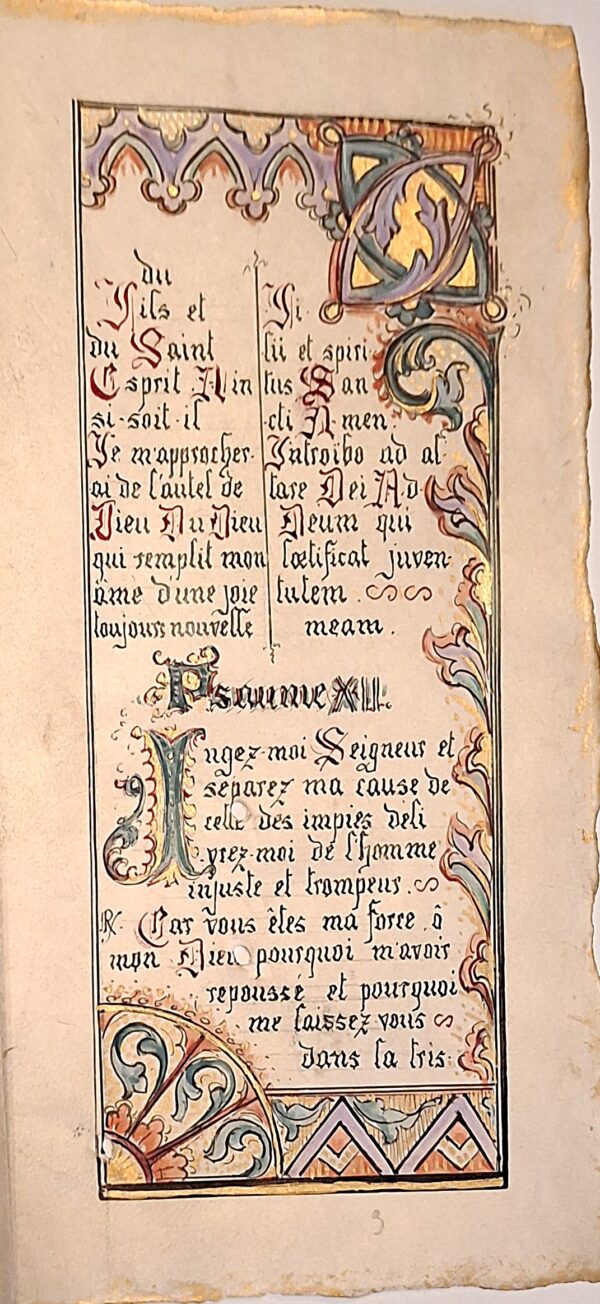 du
Fils et
du Saint
Esprit Ain
si-soit-il
Je m'approcher-
ai de l'autel de
Dieu Du Dieu
qui remplit mon
âme d'une joie
toujours nouvelle
Fi-
lii et spiri-
tus San
cti A-men.
Introibo ad al-
tare Dei Ad
Deum qui
lœtificat juven-
tutem
meam.
Psaume XLII.
Jugez-moi Seigneur et
séparez ma cause de
celle des impies déli
vrez-moi de l'homme
injuste et trompeur.
R. Car vous êtes ma force ô
mon Dieu pourquoi m'avoir
repoussé et pourquoi
me laissez vous
dans la tris-
3